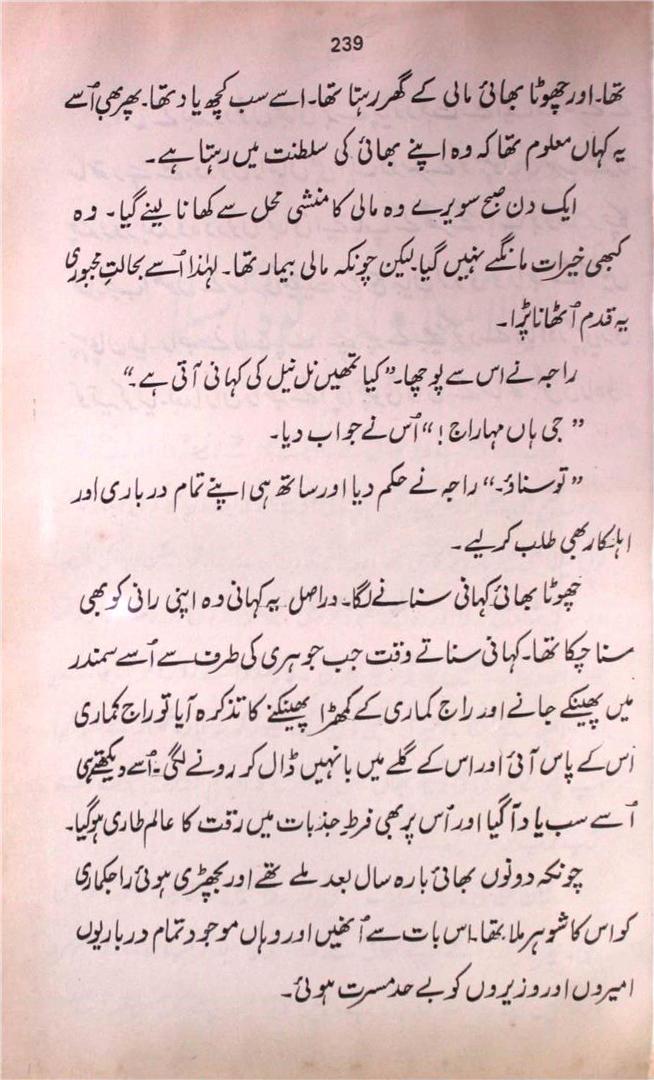 239
تھا۔ اور چھوٹا بھائی مالی کے گھر رہتا تھا۔ اسے سب کچھ یاد تھا۔ پھر بھی اُسے
یہ کہاں معلوم تھا کہ وہ اپنے بھائی کی سلطنت میں رہتا ہے۔
ایک دن صبح سویرے وہ مالی کا منشی محل سے کھانا لینے گیا۔ وہ
کبھی خیرات مانگے نہیں گیا۔ لیکن چونکہ مالی بیمار تھا۔ لہٰذا اُسے بحالتِ مجبوری
یہ قدم اُٹھانا پڑا۔
راجہ نے اس سے پوچھا۔ ”کیا تمھیں نل نیل کی کہانی آتی ہے۔“
”جی ہاں مہاراج!“ اُس نے جواب دیا۔
”تو سناؤ۔“ راجہ نے حکم دیا اور ساتھ ہی اپنے تمام درباری اور
اہلکار بھی طلب کر لیے۔
چھوٹا بھائی کہانی سنانے لگا۔ دراصل یہ کہانی وہ اپنی رانی کو بھی
سنا چکا تھا۔ کہانی سناتے وقت جب جوہری کی طرف سے اُسے سمندر
میں پھینکے جانے اور راج کماری کے گھڑا پھینکنے کا تذکرہ آیا تو راج کماری
اس کے پاس آئی اور اس کے گلے میں بانہیں ڈال کر رونے لگی۔ اُسے دیکھتے ہی
اُسے سب یاد آ گیا اور اُس پر بھی فرطِ جذبات میں رقت کا عالم طاری ہو گیا۔
چونکہ دونوں بھائی بارہ سال بعد ملے تھے اور بچھڑی ہوئی راجکماری
کو اس کا شوہر ملا تھا۔ اس بات سے اُنھیں اور وہاں موجود تمام درباریوں
امیروں اور وزیروں کو بے حد مسرت ہوئی۔